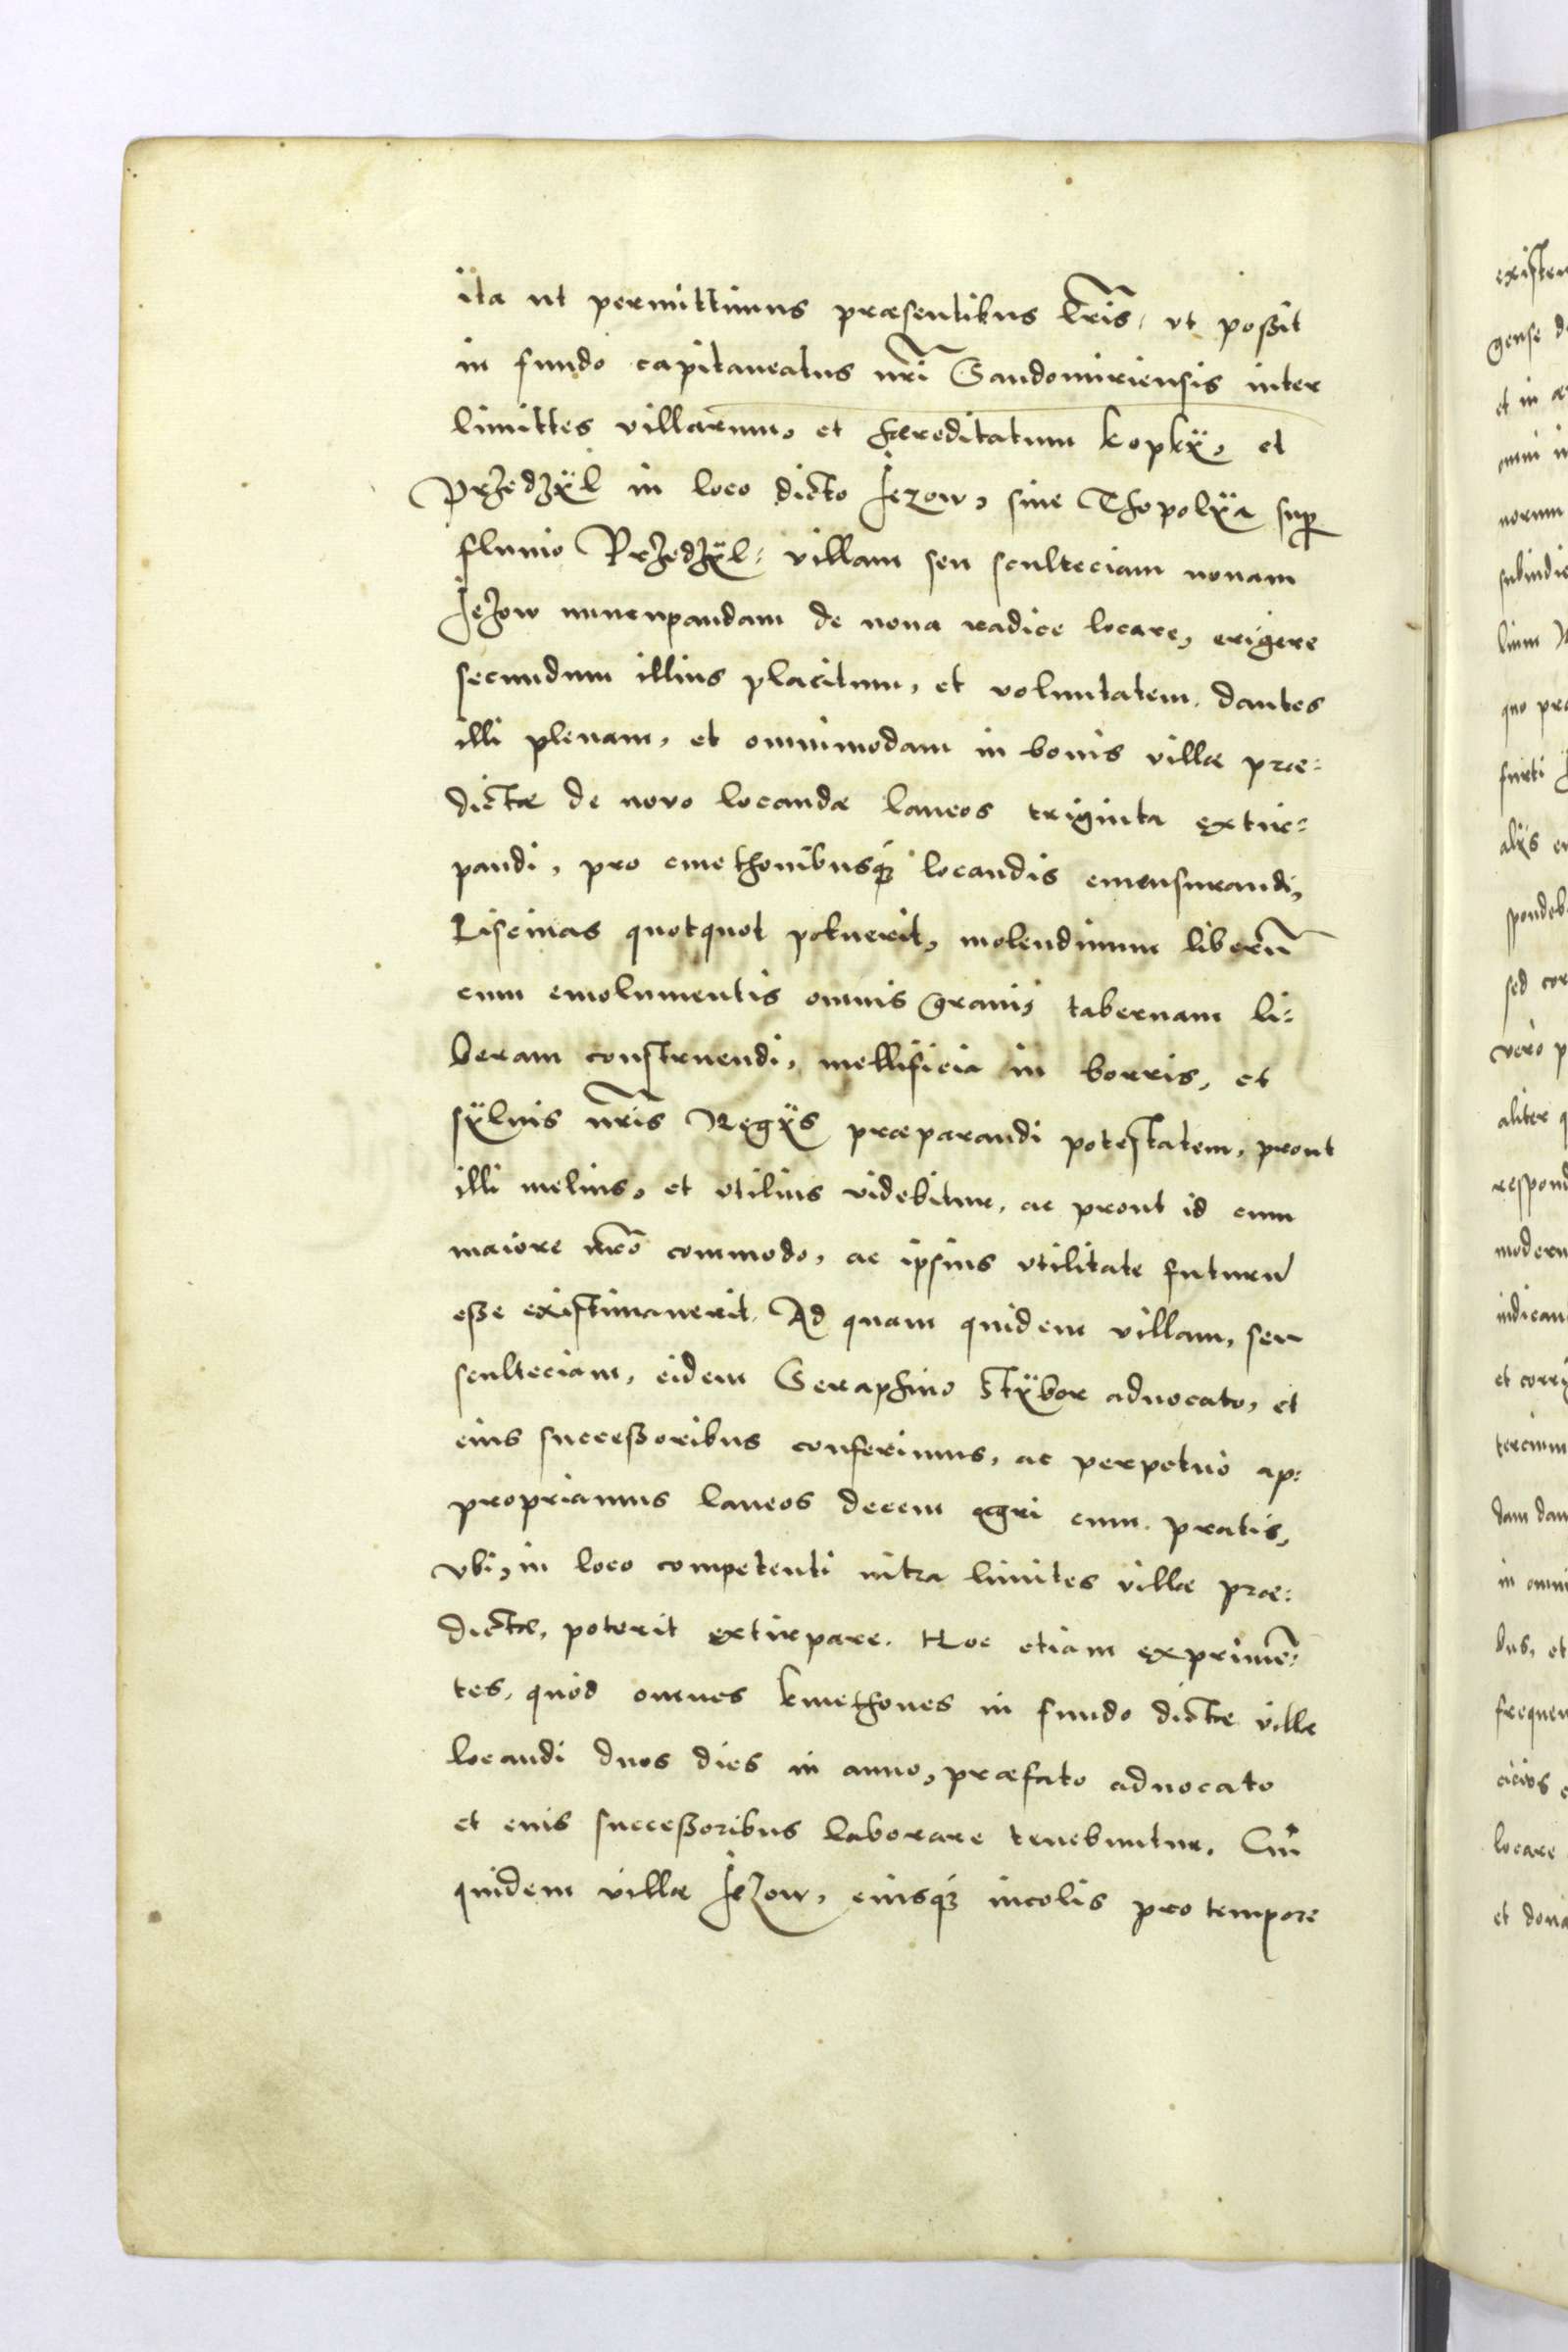 ita ut permittimus præsentibus lr̃is, ut poßit
in fundo capitaneatus nr̃i Sandomiriensis inter
limittes villarum, et hæreditatum kopkÿ, et
Przedzÿl in loco dicto Jezow, siue Thopolÿa sup
fluuio Przedzÿl: villam seu sculteciam nouam
Jezow nuncupandam de noua radice locare, erigere
secundum illius placitum, et voluntatem. dantes
illi plenam, et omnimodam in bonis villæ præ:
dictæ de novo locandæ laneos triginta extir:
pandi, pro cmethonibusq́ locandis emensurandi,
Piscinas quotquot potuerit, molendinum liberũ
cum emolumentis omnis grani, tabernam li:
beram construendi, mellificia in borris, et
sÿluis nr̃is Regÿs præparandi potestatem, prout
illi melius, et vtilius videbitur, ac prout id cum
maiore nr̃o commodo, ac ipsius vtilitate futurũ
eße existimauerit. Ad quam quidem villam, seu
sculteciam, eidem Seraphino Stÿbor aduocato, et
eius succeßoribus conferimus, ac perpetuò ap:
propriamus laneos decem agri cum pratis,
vbi, in loco competenti intra limites villæ præ:
dictæ, poterit extirpare. Hoc etiam exprimẽ:
tes, quòd omnes kmethones in fundo dictæ villæ
locandi duos dies in anno, præfato aduocato
et eius succeßoribus laborare tenebuntur. Cui
quidem villæ Jezow, eiusq́ incolis pro tempore
existen
gense d
et in
omni
norum
subindic
lium
quo pr
furti
alÿs
spondeb
sed cor
verò p
aliter q
respond
modern
iudican
et corri
tercium
dam dam
in omni
bus, et
frequen
cicios
locare
et dona